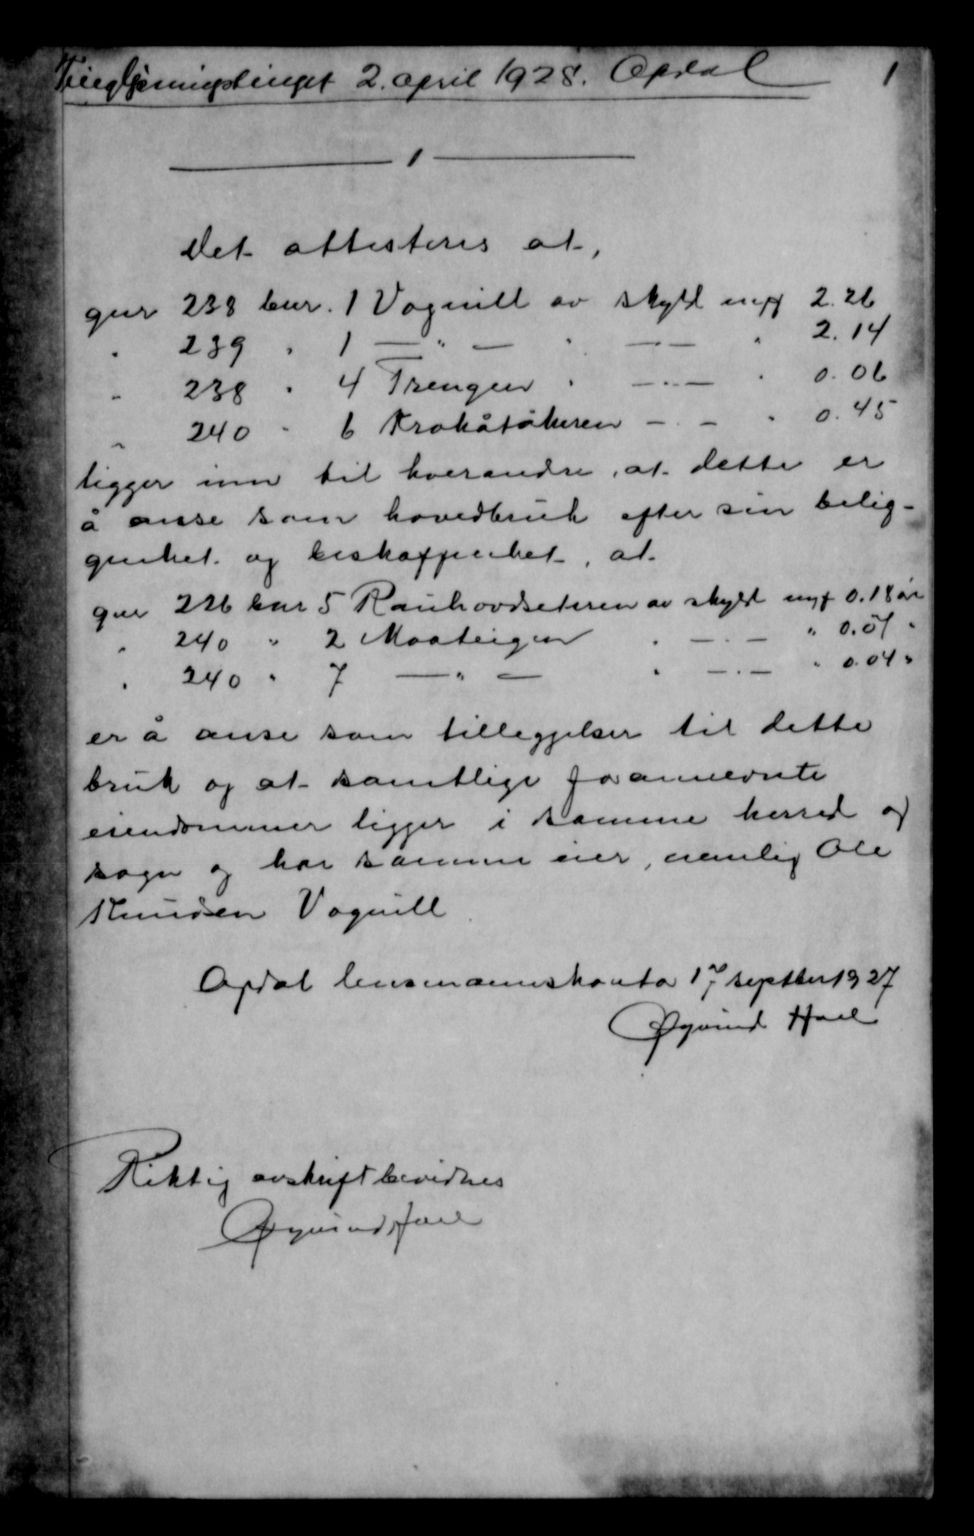 Tinglysningstinget 2. april 1928. Opdal 1
1
Det attesteres at,
gnr 238 bnr. 1 Vognill av skyld mrk 2.26
" 239 " 1 — " — " — . — " 2.14
" 238 " 4 Trengen " — . — " 0.06
" 240 " 6 Krokåtåkeren — . — " 0.45
ligger inn til hverandre, at dette er
å anse som hovedbruk efter sin belig-
genhet og beskaffenhet, at
gnr 226 bnr 5 Rauhovdseteren av skyld mrk 0.18 øre
" 240 " 2 Maateigen " — . — " 0.07 "
" 240 " 7 — " — " — . — " 0.04 "
er å anse som tilleggelser til dette
bruk og at samtlige forannevnte
eiendommer ligger i samme herred og
sogn og har samme eier, nemlig Ole
Knudsen Vognill
Opdal lensmannskontor 17 septber 1927
Øyvind Hoel
Riktig avskrift bevidnes
Øyvind Hoel